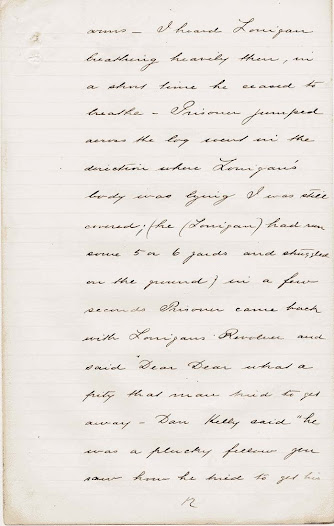 arms - I heard Lonigan
breathing heavily then, in
a short time he ceased to
breathe - Prisoner jumped
across the log went in the
direction where Lonigan's
body was lying I was still
covered; (he (Lonigan) had run
some 5 or 6 yards and struggled
on the ground) in a few
seconds Prisoner came back
with Lonigans Revolver and
said "Dear Dear what a
pity that man tried to get
away - Dan Kelly said "he
was a plucky fellow you
saw how he tried to get his
12